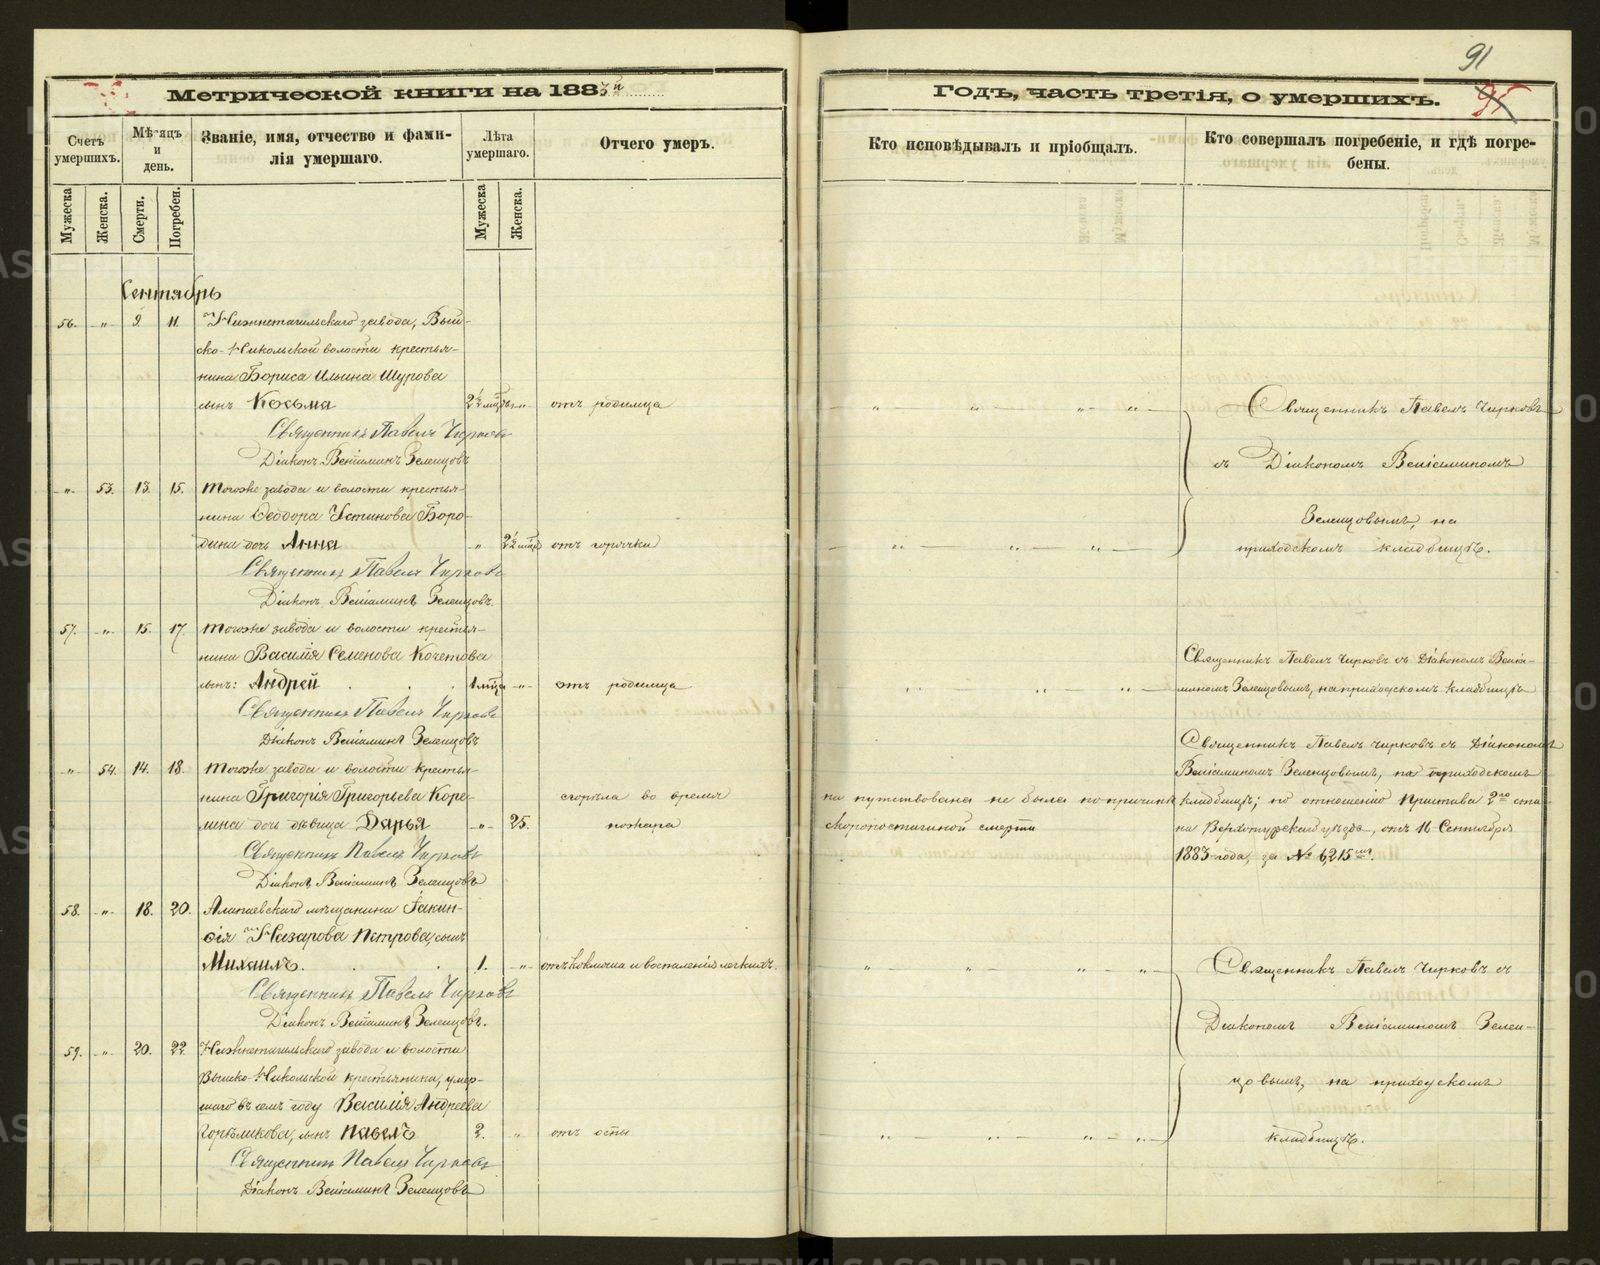 91
95
Метрической книги на 1883й
Годъ, часть третія, о умершихъ.
Счетъ умершихъ.
Мѣсяцъ и день.
Званіе, имя, отчество и фами-
лія умершаго.
Лѣта умершаго.
Отчего умеръ.
Кто исповѣдывалъ и пріобщалъ.
Кто совершалъ погребеніе, и гдѣ погре-
бены.
Мужеска
Женска.
Смерти.
Погребен.
Мужеска
Женска.
Сентябрь
56. -„- 9. 11. Нижнетагильскаго завода, Вый-
ско-Никольской волости крестья-
нина Бориса Ильина Щурова
сынъ Косьма 2½ мѣц. -„- отъ родимца
Священникъ Павелъ Чирковъ
Діаконъ Веніаминъ Зеленцовъ
-„- 53. 13. 15. Тогоже завода и волости крестья-
нина Ѳеодора Устинова Боро-
дина дочь Анна -„- 2½ мѣц. отъ горячки
Священникъ Павелъ Чирковъ
Діаконъ Веніаминъ Зеленцовъ.
Священникъ Павелъ Чирковъ
съ Діакономъ Веніаминомъ
Зеленцовымъ, на
приходскомъ кладбищѣ.
57. -„- 15. 17. Тогоже завода и волости крестья-
нина Василія Семенова Кочетова
сынъ: Андрей 1 мѣца -„- отъ родимца
Священникъ Павелъ Чирковъ
Діаконъ Веніаминъ Зеленцовъ
Священникъ Павелъ Чирковъ съ Діакономъ Веніа-
миномъ Зеленцовымъ, на приходскомъ кладбищѣ
-„- 54. 14. 18. Тогоже завода и волости крестья-
нина Григорія Григорьева Коре-
лина дочь дѣвица Дарья -„- 25. сгорѣла во время
пожара
Священникъ Павелъ Чирковъ
Діаконъ Веніаминъ Зеленцовъ
на путствована не была по причинѣ
скоропостижной смерти
Священникъ Павелъ Чирковъ съ Діакономъ
Веніаминомъ Зеленцовымъ, на приходскомъ
кладбищѣ; по отношенію Пристава 2го ста-
на Верхотурскаго уѣзда, отъ 16 Сентября
1883 года, за № 6215мъ.
58. -„- 18. 20. Алапаевскаго мѣщанина Іакин-
ѳія Назарова Петрова, сынъ
Михаилъ. 1. -„- отъ коклюша и воспаленія легкихъ.
Священникъ Павелъ Чирковъ
Діаконъ Веніаминъ Зеленцовъ.
59. -„- 20. 22. Нижнетагильскаго завода и волости
Выйско-Никольской крестьянина, умер-
шаго въ семъ году Василія Андреева
Горѣликова, сынъ Павелъ 2. -„- отъ оспы
Священникъ Павелъ Чирковъ
Діаконъ Веніаминъ Зеленцовъ
Священникъ Павелъ Чирковъ съ
Діакономъ Веніаминомъ Зелен-
цовымъ, на приходскомъ
кладбищѣ.